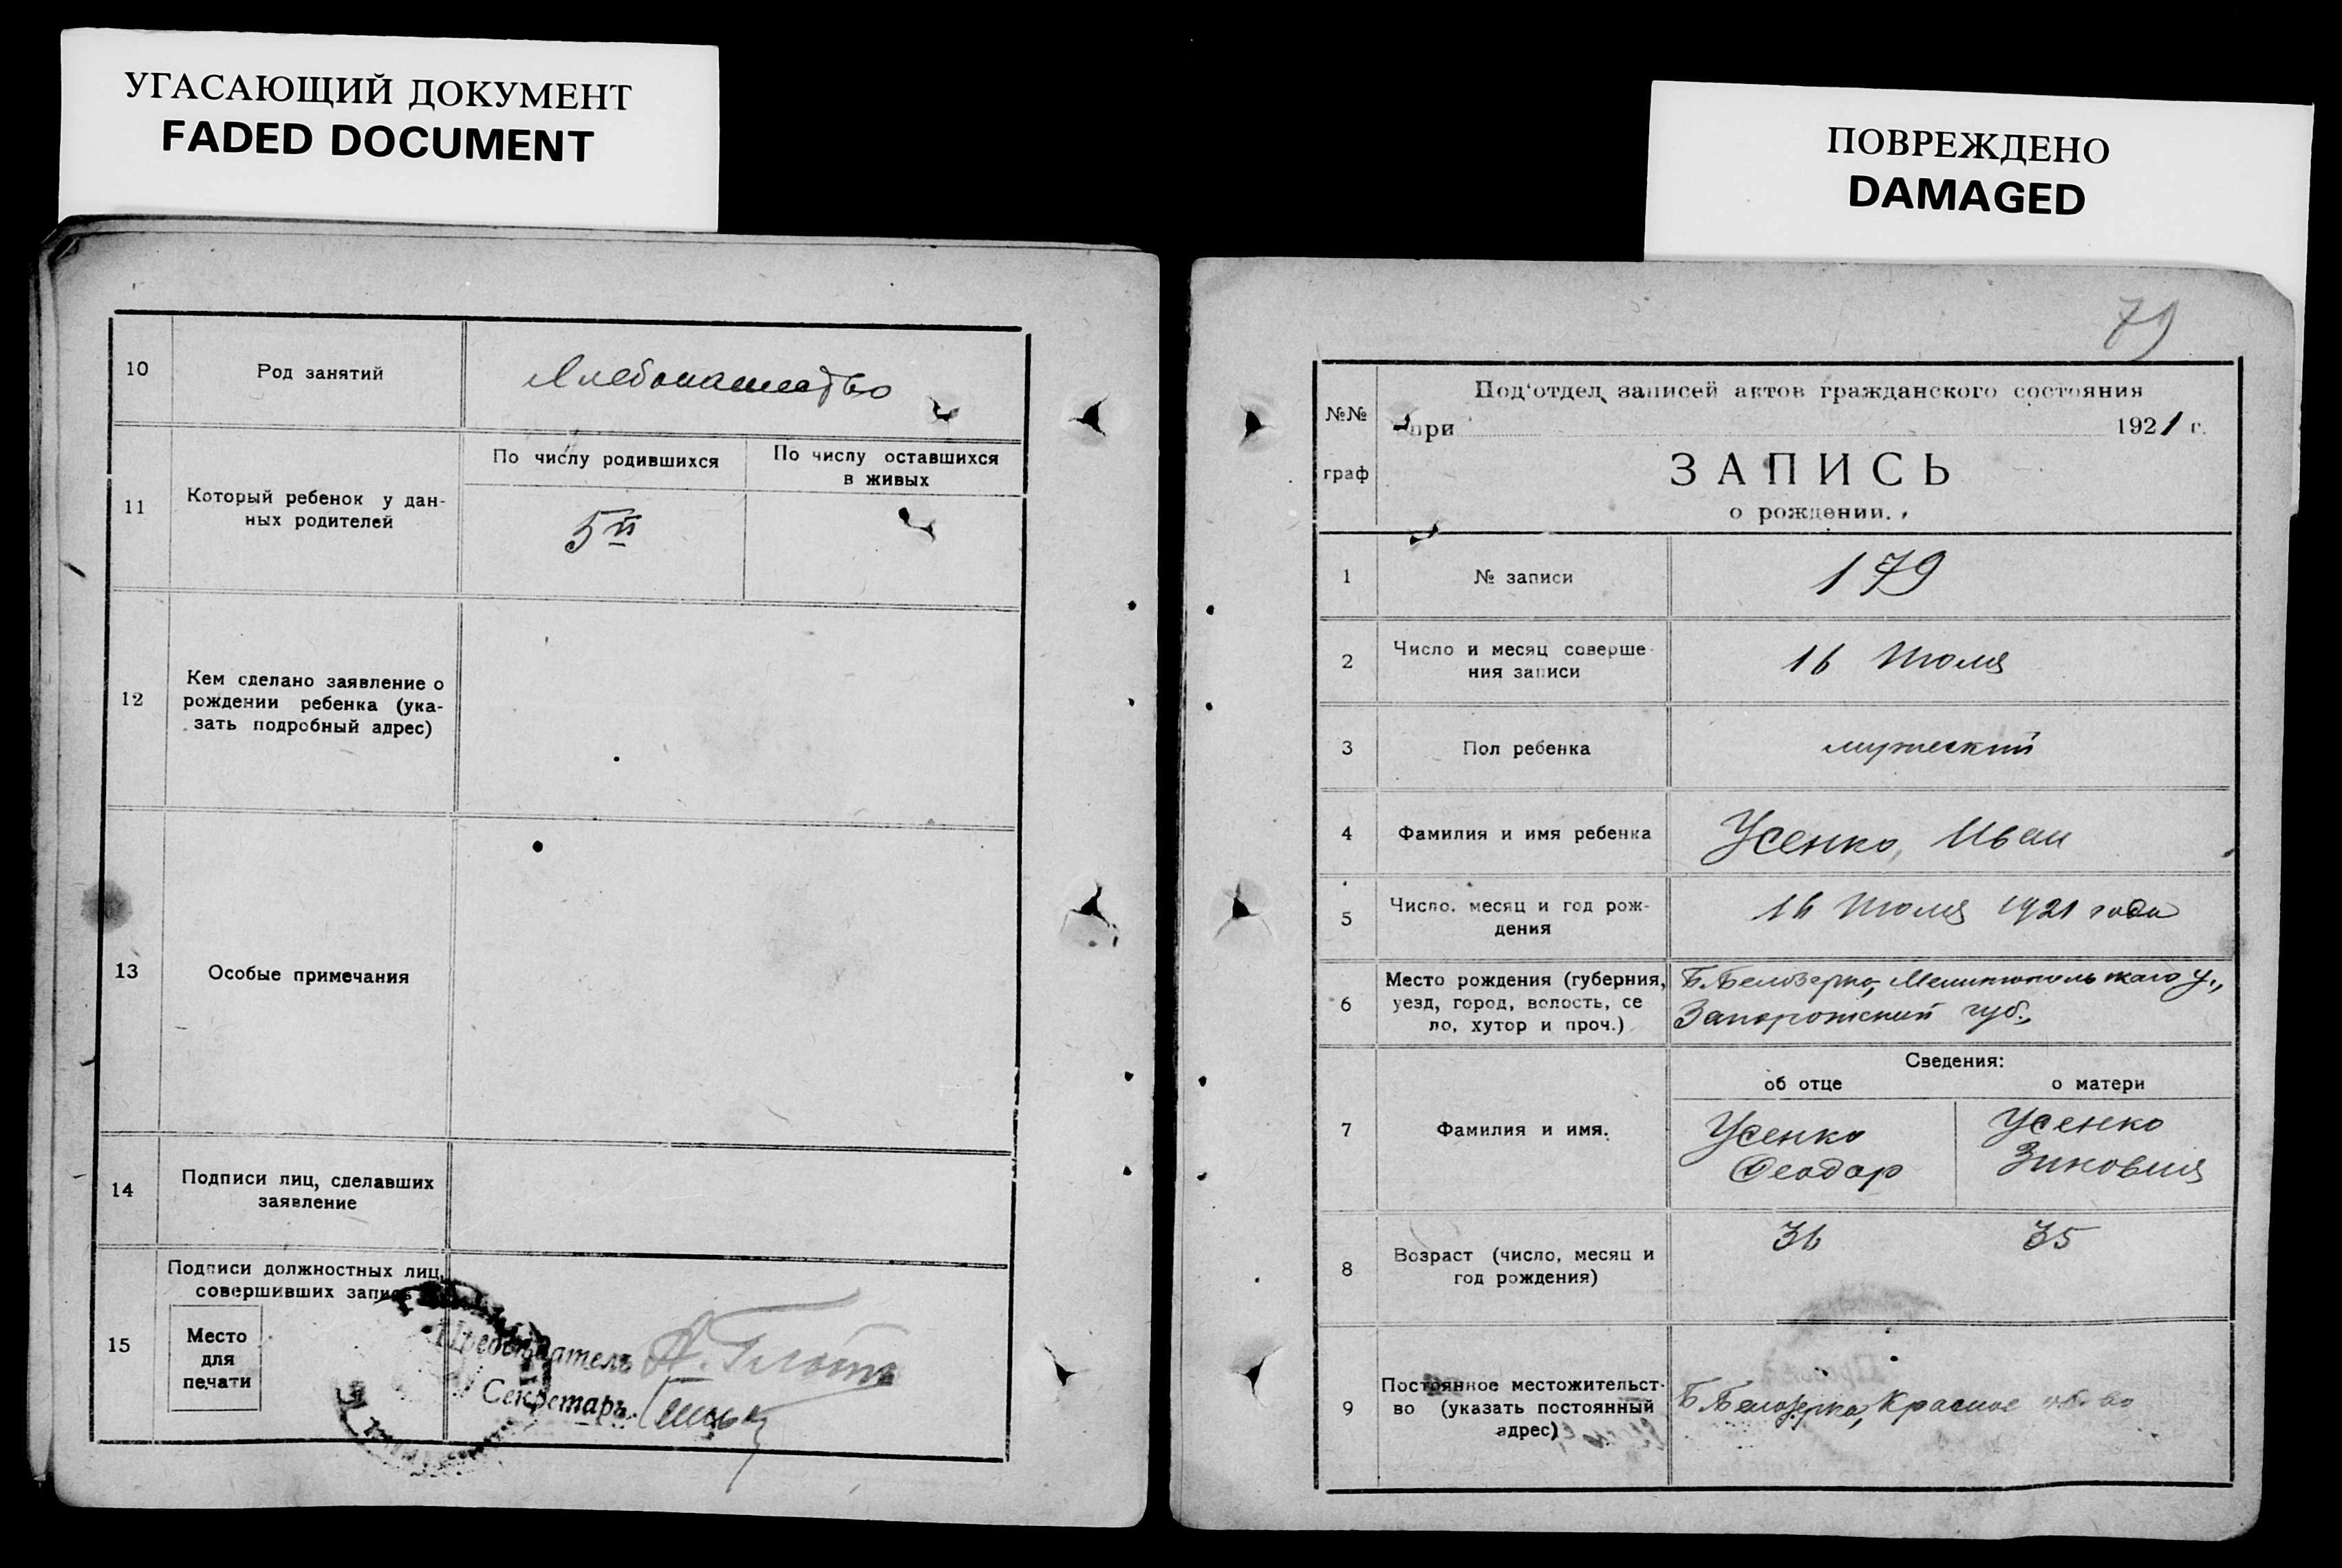 УГАСАЮЩИЙ ДОКУМЕНТ
FADED DOCUMENT
10
Род занятий
Хлебопашество
11
Который ребенок у дан-
ных родителей
По числу родившихся
5й
По числу оставшихся
в живых
12
Кем сделано заявление о
рождении ребенка (ука-
зать подробный адрес)
13
Особые примечания
14
Подписи лиц, сделавших
заявление
15
Подписи должностных лиц,
совершивших запись
Место
для
печати
Председатель
Секретарь
ПОВРЕЖДЕНО
DAMAGED
79
№№
граф
Под'отдел записей актов гражданского состояния
при 1921 г.
ЗАПИСЬ
о рождении.
1
№ записи
179
2
Число и месяц соверше-
ния записи
16 Июля
3
Пол ребенка
мужеский
4
Фамилия и имя ребенка
Усенко, Иван
5
Число, месяц и год рож-
дения
16 Июля 1921 года
6
Место рождения (губерния,
уезд, город, волость, се
ло, хутор и проч.)
Б. Белозерка, Мелитопольскаго у.,
Запорожский губ.,
Сведения:
об отце
о матери
7
Фамилия и имя.
Усенко
Феодор
Усенко
Зиновия
8
Возраст (число, месяц и
год рождения)
36
35
9
Постоянное местожительст-
во (указать постоянный
адрес)
Б. Белозерка, Красное об-во